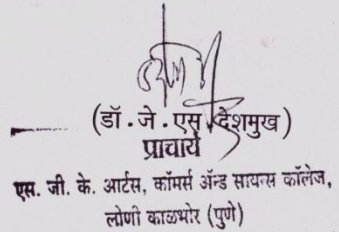 (डॉ. जे. एस. देशमुख)
प्राचार्य
एस. जी. के. आर्टस, कॉमर्स अॅन्ड सायन्स कॉलेज,
लोणी काळभोर (पुणे)